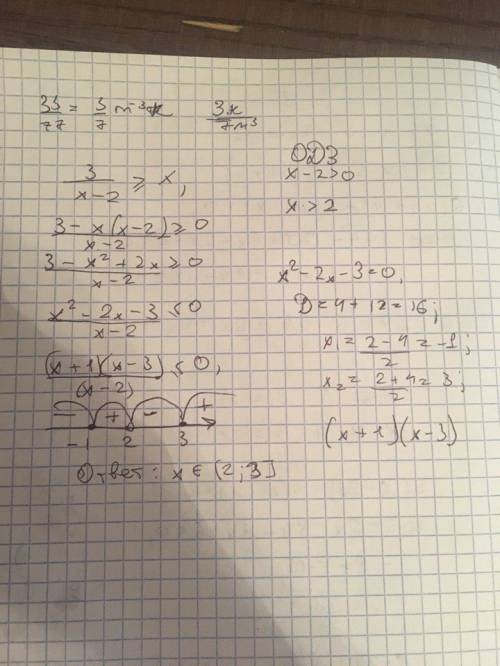 33/77 = 3/7 m⁻³x 3x/7m³
3/(x-2) ≥ x,
(3 - x(x-2))/(x-2) ≥ 0
(3 - x² + 2x)/(x-2) ≥ 0
(x² - 2x - 3)/(x-2) ≤ 0
((x+1)(x-3))/(x-2) ≤ 0,
- + - +
-1 2 3
Ответ: x ∈ (2; 3]
ОДЗ
x - 2 > 0
x > 2
x² - 2x - 3 = 0,
D = 4 + 12 = 16;
x₁ = (2-4)/2 = -1;
x₂ = (2+4)/2 = 3;
(x+1)(x-3)